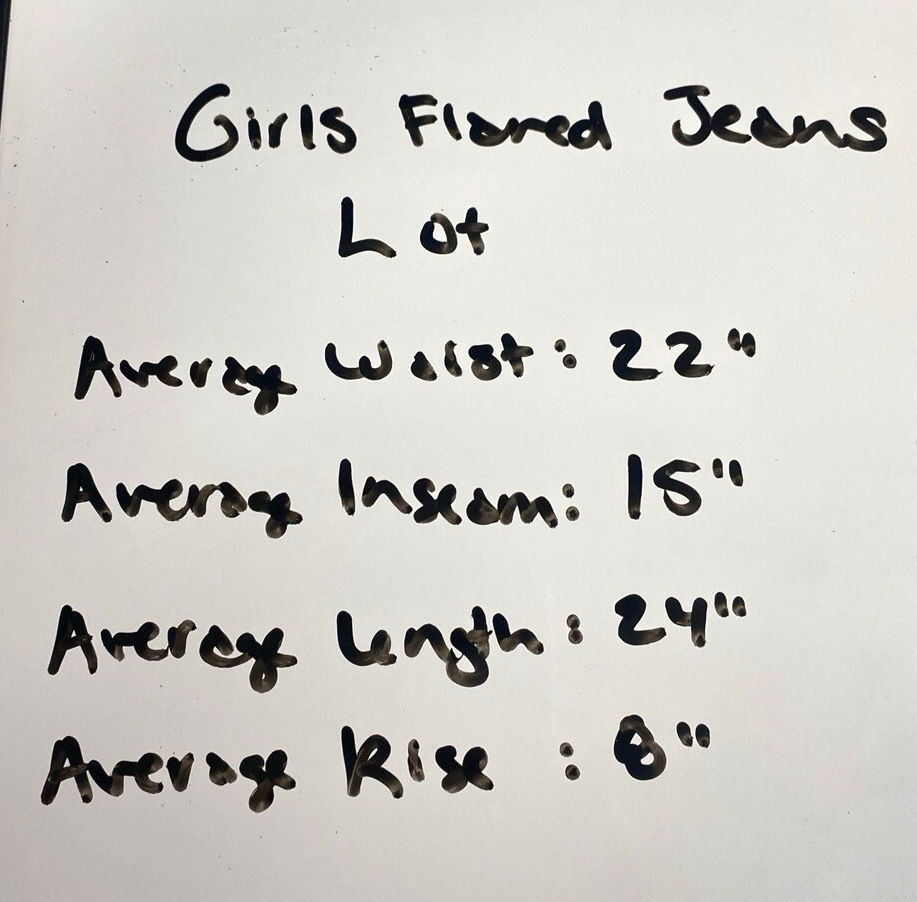 Girls Flared Jeans
Lot
Average Waist: 22"
Average Inseam: 15"
Average Length: 24"
Average Rise: 8"